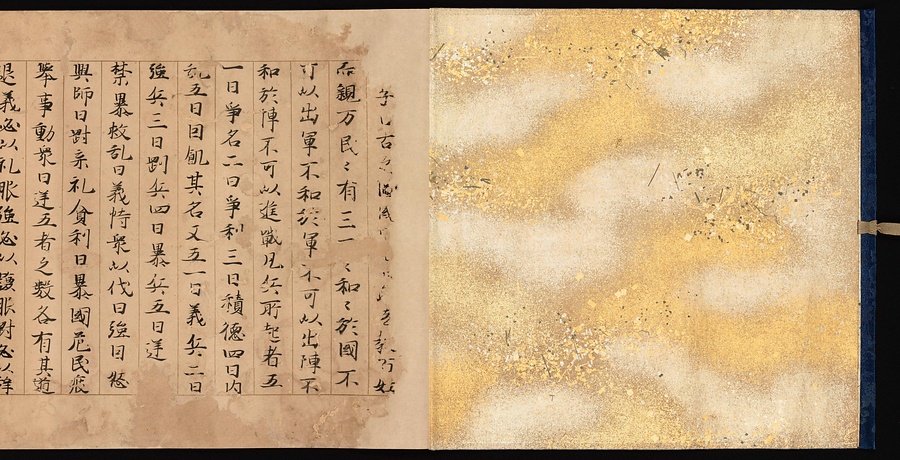 子曰古之 教百姓
而親万民〻有三 〻和〻於國不
可以出軍不和於軍不可以出陣不
和於陣不可以進戰凡兵所起者五
一曰爭名二曰爭利三曰積德四曰内
乱五曰因飢其名又五一曰義兵二曰
強兵三曰剛兵四曰暴兵五曰逆
禁暴救乱曰義恃衆以伐曰強因怒
興師曰剛棄礼貪利曰暴國危民疲
舉事動衆曰逆五者之數各有其道
義必以礼服強必以謙服剛必以辞